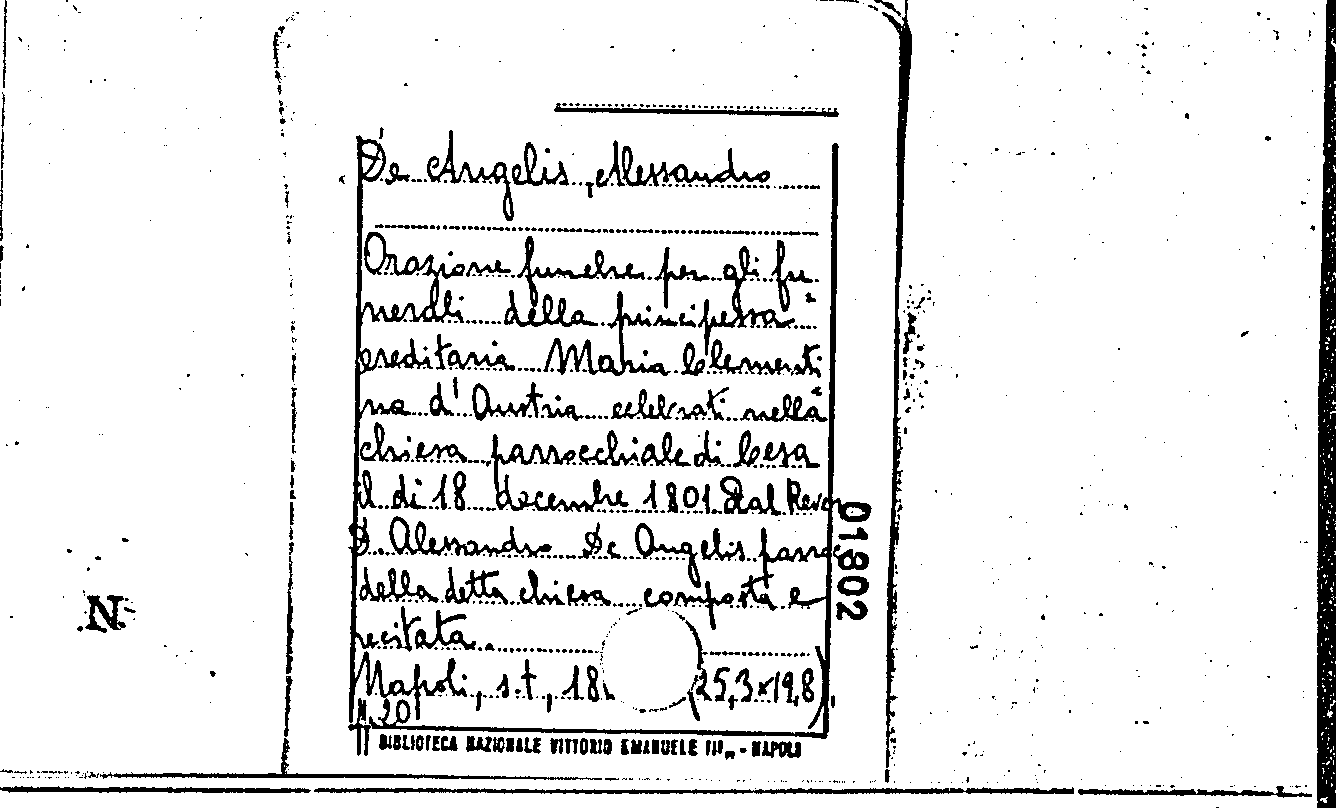 De Angelis, Alessandro
Orazione funebre per gli fu
nerali della principessa
ereditaria Maria Clementi
na d'Austria celebrati nella
chiesa parrocchiale di Cesa
il dì 18 decembre 1801 Dal Rever
D. Alessandro De Angelis parroc
della detta chiesa composta e
recitata.
Napoli, s.t, 18 (25,3x19,8),
20
BIBLIOTECA NAZIONALE VITTORIO EMANUELE III - NAPOLI
01802
N